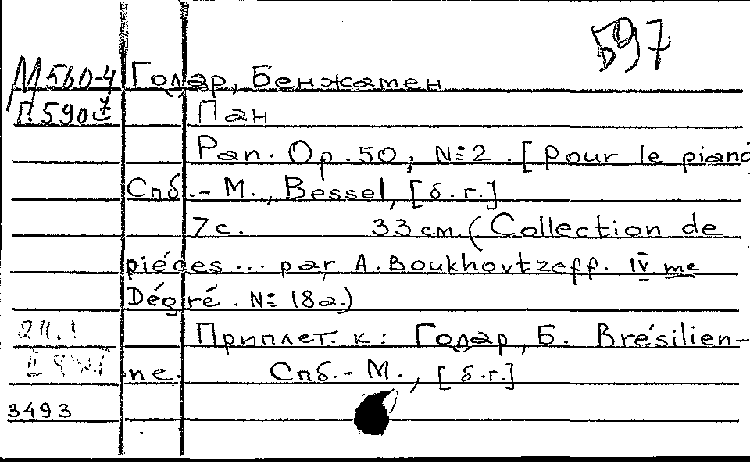 597
М560-4 Годар, Бенжамен
П590 Пан
Pan. Op. 50, №2. [Pour le piano
Спб.-М., Bessel, [б.г.]
7с. 33см. (Collection de
piéces... par A. Boukhovtzeff. IV me
Dégré. № 18a.)
Приплет. к: Годар, Б. Brésilien-
ne. Спб.-М., [б.г.]
3493